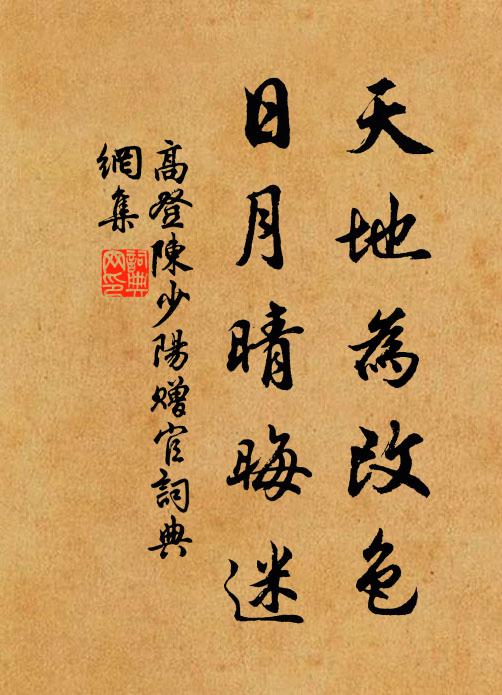 天地為改色
日月晴晦迷
高登陳少陽贈官詞典
網集
詞典
网印